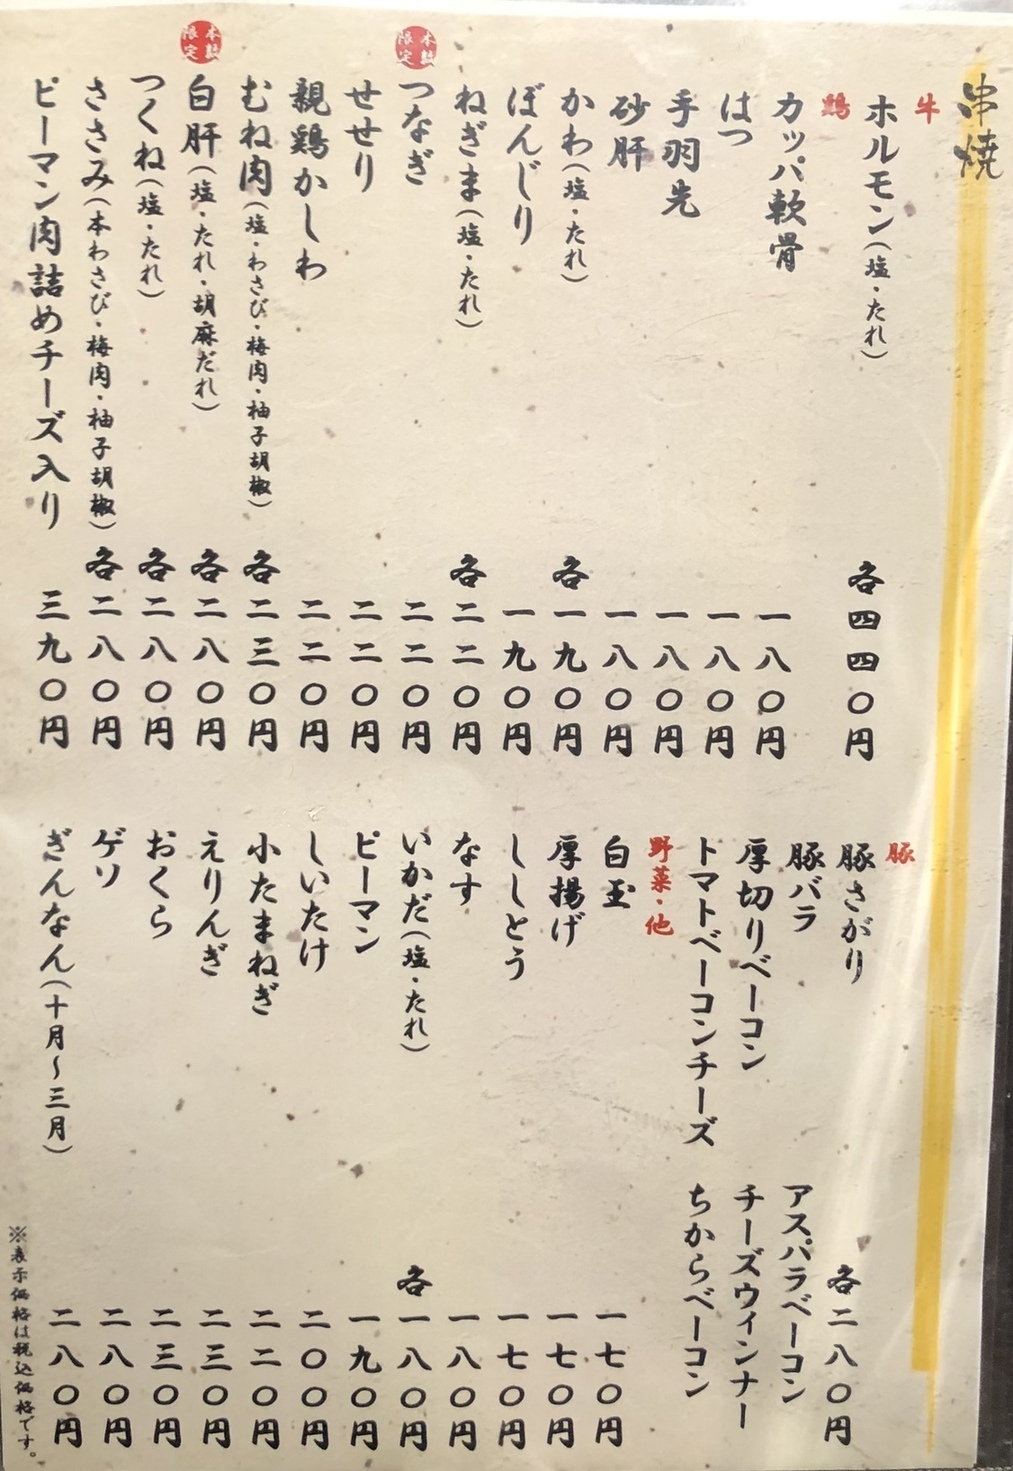 串焼
牛
ホルモン(塩・たれ) 各四四〇円
鶏
カッパ軟骨 一八〇円
はつ 一八〇円
手羽先 一八〇円
砂肝 一八〇円
かわ(塩・たれ) 各一九〇円
ぼんじり 一九〇円
ねぎま(塩・たれ) 各二二〇円
本数限定
つなぎ 二二〇円
せせり 二二〇円
親鶏かしわ 二二〇円
むね肉(塩・わさび・梅肉・柚子胡椒) 各二三〇円
本数限定
白肝(塩・たれ・胡麻だれ) 各二八〇円
つくね(塩・たれ) 各二八〇円
ささみ(本わさび・梅肉・柚子胡椒) 各二八〇円
ピーマン肉詰めチーズ入り 三九〇円
豚
豚さがり 各二八〇円
豚バラ アスパラベーコン
厚切りベーコン チーズウィンナー
トマトベーコンチーズ ちからベーコン
野菜・他
白玉 一七〇円
厚揚げ 一七〇円
ししとう 一七〇円
なす 一八〇円
いかだ(塩・たれ) 各一八〇円
ピーマン 一九〇円
しいたけ 二〇〇円
小たまねぎ 二二〇円
えりんぎ 二三〇円
おくら 二三〇円
ゲソ 二八〇円
ぎんなん(十月〜三月) 二八〇円
※表示価格は税込価格です。